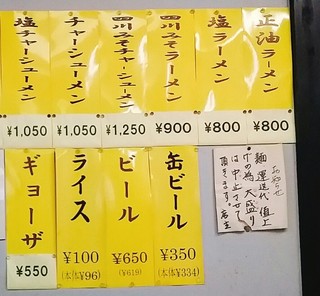 正油ラーメン
¥800
塩ラーメン
¥800
四川みそラーメン
¥900
四川みそチャーシューメン
¥1,250
チャーシューメン
¥1,050
塩チャーシューメン
¥1,050
お知らせ
麺運送代値上
げの為大盛り
は中止させて
頂きます。店主
缶ビール
¥350
(本体¥334)
ビール
¥650
(¥619)
ライス
¥100
(本体¥96)
ギョーザ
¥550